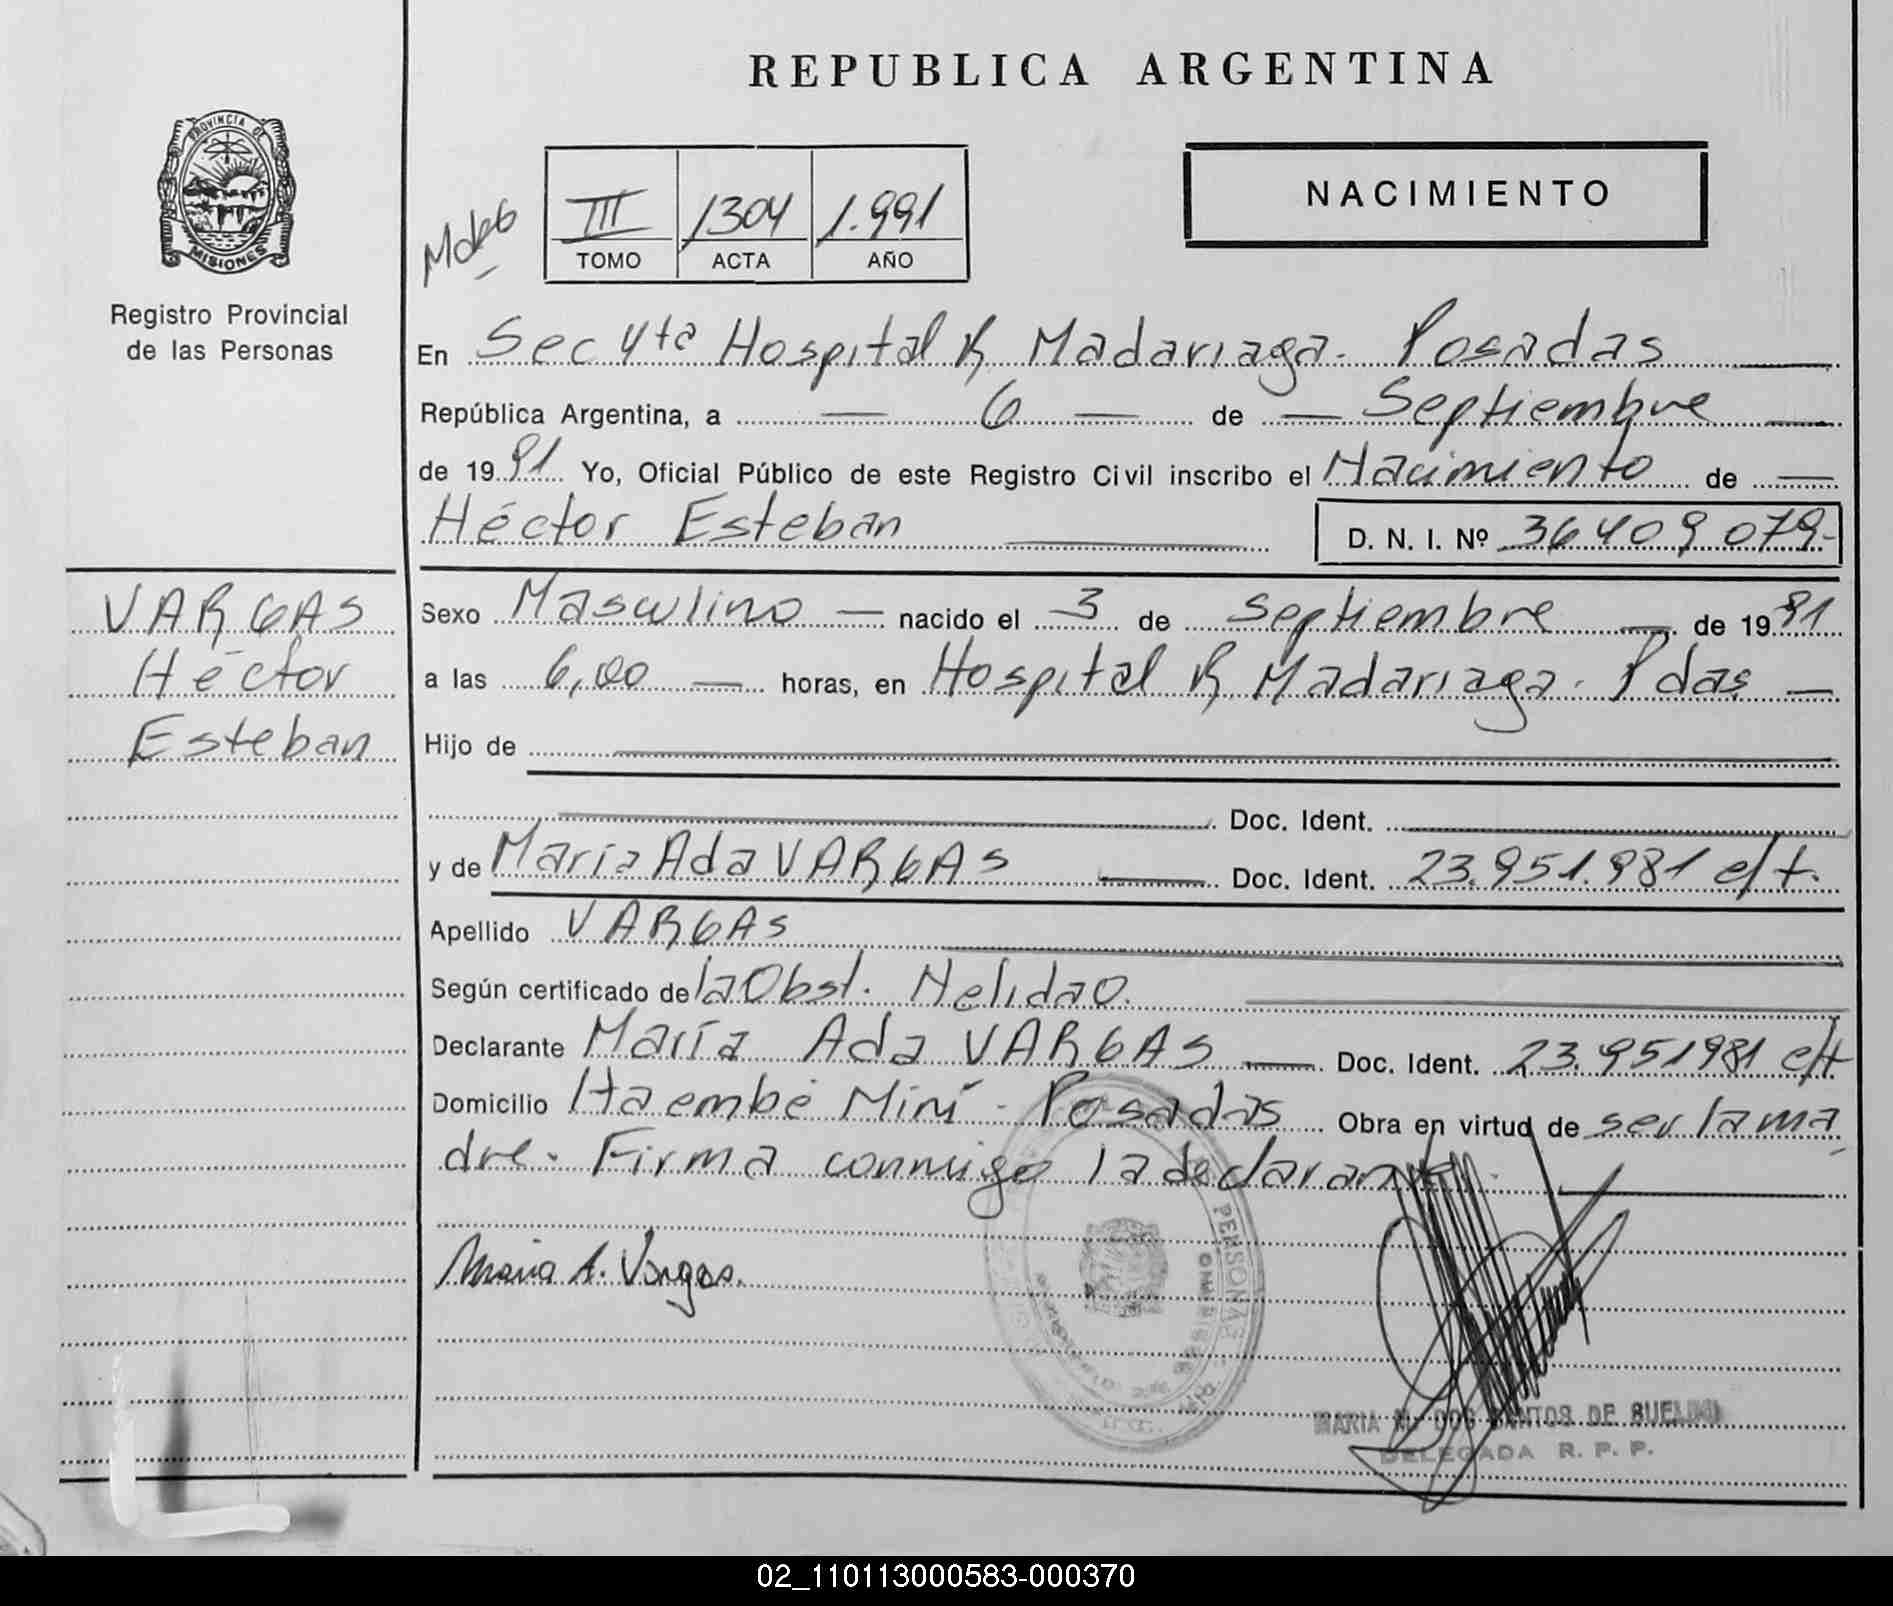 REPUBLICA ARGENTINA
PROVINCIA DE
MISIONES
Registro Provincial
de las Personas
III 1304 1.991
TOMO ACTA AÑO
NACIMIENTO
En Sec 4ta Hospital R Madariaga. Posadas
República Argentina, a 6 de Septiembre
de 1991 Yo, Oficial Público de este Registro Civil inscribo el Nacimiento de
Héctor Esteban D. N. I. Nº 36409079-
VARGAS
Héctor
Esteban
Sexo Masculino nacido el 3 de Septiembre de 1991
a las 6,00 horas, en Hospital R Madariaga. Pdas
Hijo de
Doc. Ident.
y de María Ada VARGAS Doc. Ident. 23.951.981 e/t.
Apellido VARGAS
Según certificado de la Obst. Nelida O.
Declarante María Ada VARGAS Doc. Ident. 23.951981 e/t
Domicilio Itaembé Miní - Posadas Obra en virtud de ser la ma
dre. Firma conmigo la declarante.
Maria A. Vargas.
PERSONAS
MARIA DOS SANTOS DE
DELEGADA R. P. P.
02_110113000583-000370